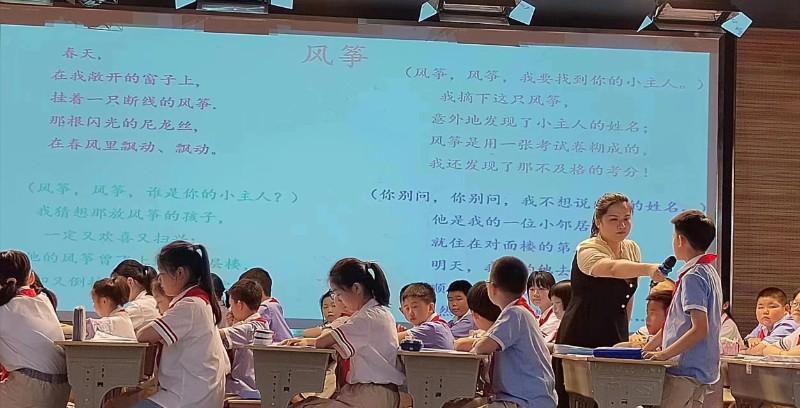 风筝
春天，
在我敞开的窗子上，
挂着一只断线的风筝.
那根闪光的尼龙丝，
在春风里飘动、飘动。
（风筝，风筝，谁是你的小主人？）
我猜想那放风筝的孩子，
一定又欢喜又扫兴
他的风筝曾
层楼
（风筝，风筝，我要找到你的小主人。）
我摘下这只风筝，
意外地发现了小主人的姓名；
风筝是用一张考试卷糊成的，
我还发现了那不及格的考分！
（你别问，你别问，我不想说
的姓名。）
他是我的一位小邻居
就住在对面楼的第
明天，我
他去
顺